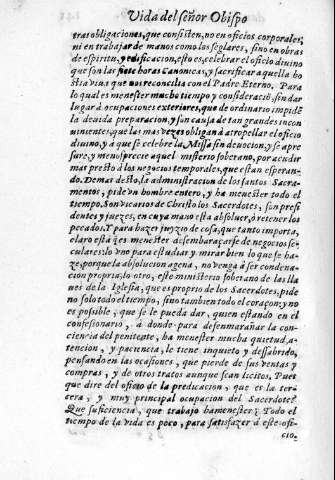 Vida del señor Obispo
tras obligaciones, que consisten, no en oficios corporales,
ni en trabajar de manos como los seglares, sino en obras
de espiritu, y edificacion, esto es, celebrar el oficio diuino
que son las siete horas Canonicas, y sacrificar aquella ho
stia viua que nos reconcilia con el Padre Eterno. Para
lo qual es menester mucho tiempo y consideració, sin dar
lugar á ocupaciones exteriores, que de ordinario impidē
la deuida preparacion, y son causa de tan grandes incon
uinientes, que las mas vezes obligan à atropellar el oficio
diuino, y à que se celebre la Missa sin deuocion, y se apre
sure, y menosprecie aquel misterio soberano, por acudir
mas presto à los negocios temporales, que estan esperan-
do. Demas desto, la administracion de los santos Sacra-
mentos, pide vn hombre entero, y ha menester todo el
tiempo. Son vicarios de Christo los Sacerdotes, son presi
dentes y juezes, en cuya mano està absoluer, ò retener los
pecados. Y para hazer juyzio de cosa, que tanto importa,
claro està q̃ es menester desembaraçarse de negocios se-
culares: lo vno para estudiar y mirar bien lo que se ha-
ze, porque la absolucion agena, no venga à ser condena-
cion propria, lo otro, este ministerio soberano de las lla
ues de la Iglesia, que es proprio de los Sacerdotes, pide
no solo todo el tiempo, sino tambien todo el coraçon: y no
es possible, que se le pueda dar, quien estando en el
confesionario, à donde para desenmarañar la con-
ciencia del penitente, ha menester mucha quietud, a-
tencion, y paciencia, le tiene inquieto y desabrido,
pensando en las ocasiones, que pierde de sus ventas y
compras, y de otros tratos aunque sean licitos. Pues
que dire del oficio de la predicacion, que es la ter-
cera, y muy principal ocupacion del Sacerdote?
Que suficiencia, que trabajo ha menester? Todo el
tiempo de la vida es poco, para satisfazer à este ofi-
cio.